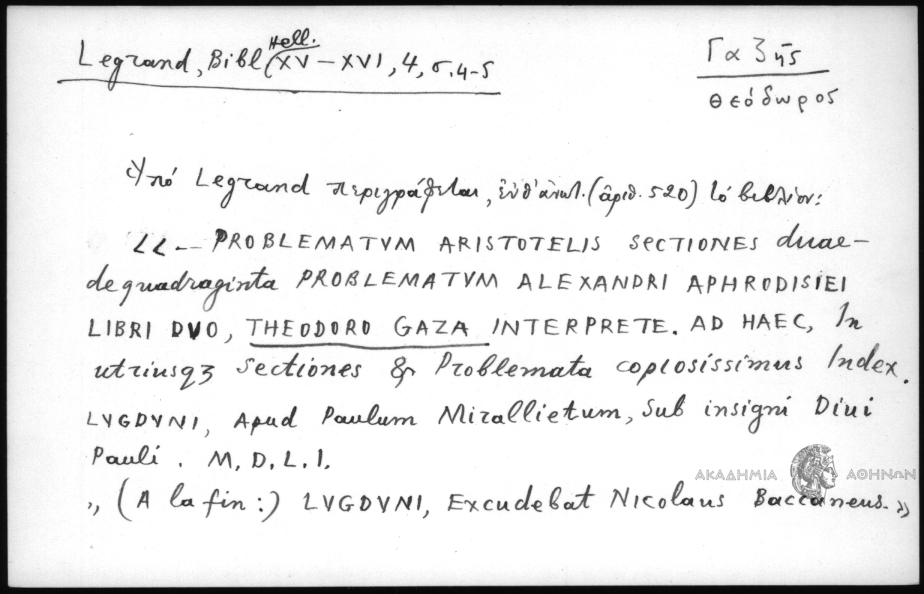 Legrand, Bibl. Hell. (XV-XVI, 4, σ. 4-5
Γαζῆς
Θεόδωρος
Ὑπό Legrand περιγράφεται, ὑπ' ἀριθ. (ἀριθ. 520) τό βιβλίον:
«– PROBLEMATVM ARISTOTELIS SECTIONES duae-
dequadraginta PROBLEMATVM ALEXANDRI APHRODISIEI
LIBRI DVO, THEODORO GAZA INTERPRETE. AD HAEC, In
utriusqꝫ Sectiones & Problemata copiosissimus Index.
LVGDVNI, Apud Paulum Mirallietum, Sub insigni Diui
Pauli. M, D, L, I,
„ (A la fin:) LVGDVNI, Excudebat Nicolaus Baccaneus.»
ΑΚΑΔΗΜΙΑ ΑΘΗΝΩΝ